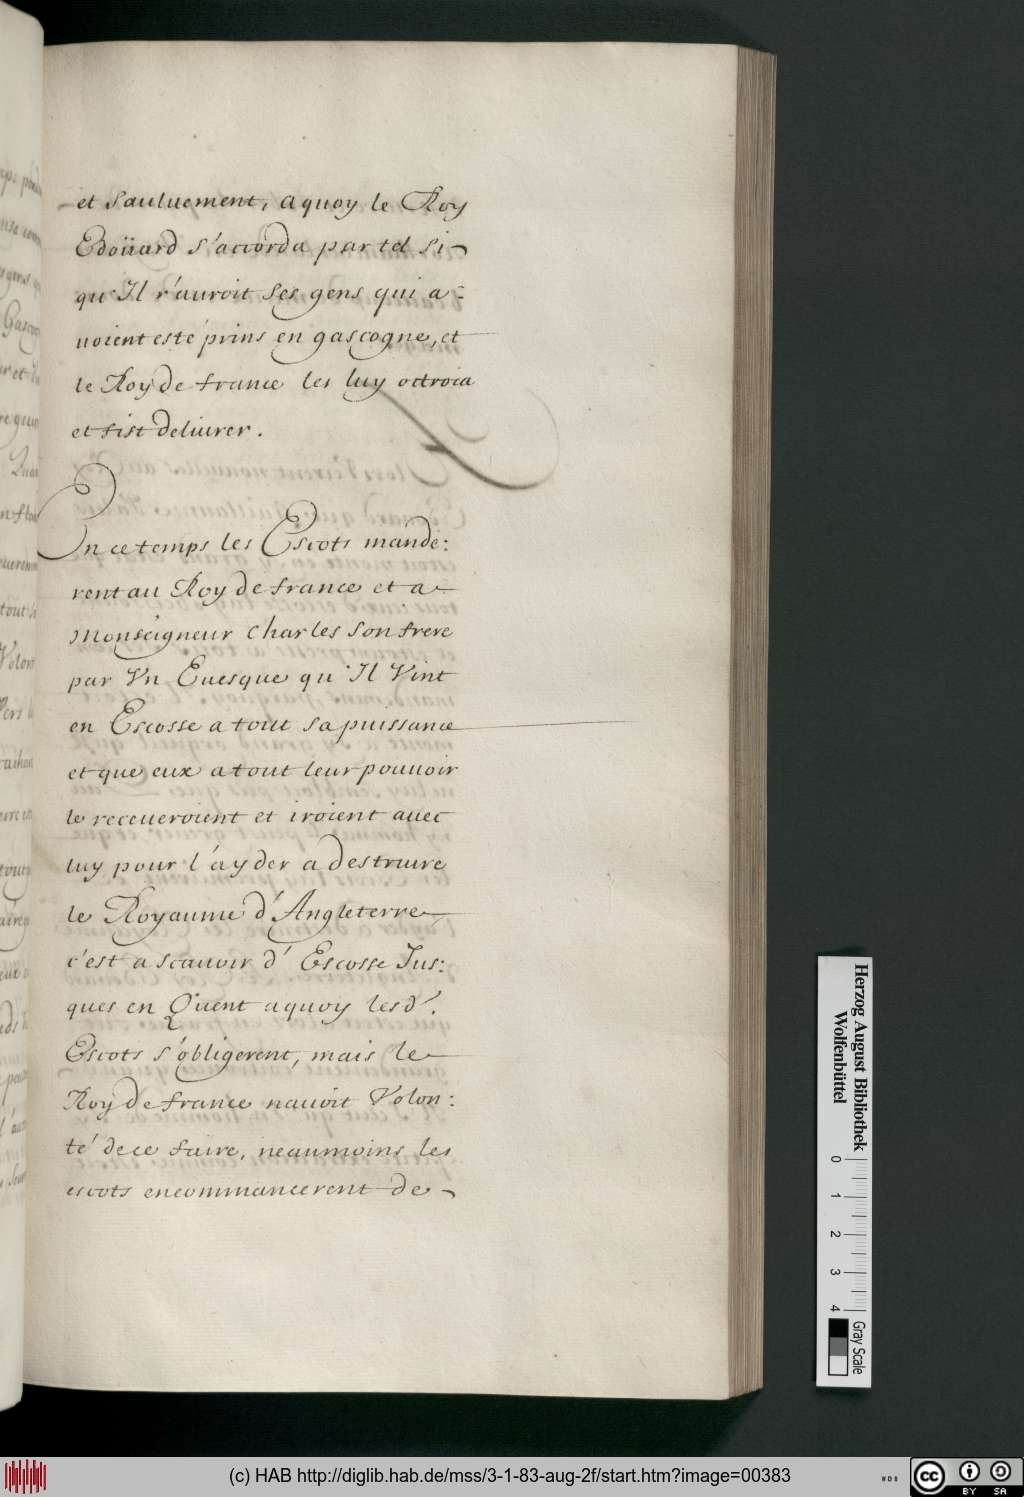 et sauluement, a quoy le Roy
Edoüard s'accorda par tel si
qu'Il r'auroit ses gens qui a-
uoient esté prins en gascogne, et
le Roy de france les luy octroia
et fist deliurer.
En ce temps les Escots mande:
rent au Roy de france et a
Monseigneur Charles son frere
par Vn Euesque qu'Il Vint
en Escosse a tout sa puissance
et que eux a tout leur pouuoir
le receueroient et iroient auec
luy pour l'ayder a destruire
le Royaume d'Angleterre
c'est a scauoir d'Escosse Jus:
ques en Quent a quoy lesd.
Escots s'obligerent, mais le
Roy de france nauoit Volon:
té de ce faire, neaumoins les
escots encommancerent de
Herzog August Bibliothek
Wolfenbüttel
0 1 2 3 4
Gray Scale
(c) HAB http://diglib.hab.de/mss/3-1-83-aug-2f/start.htm?image=00383
cc
BY SA